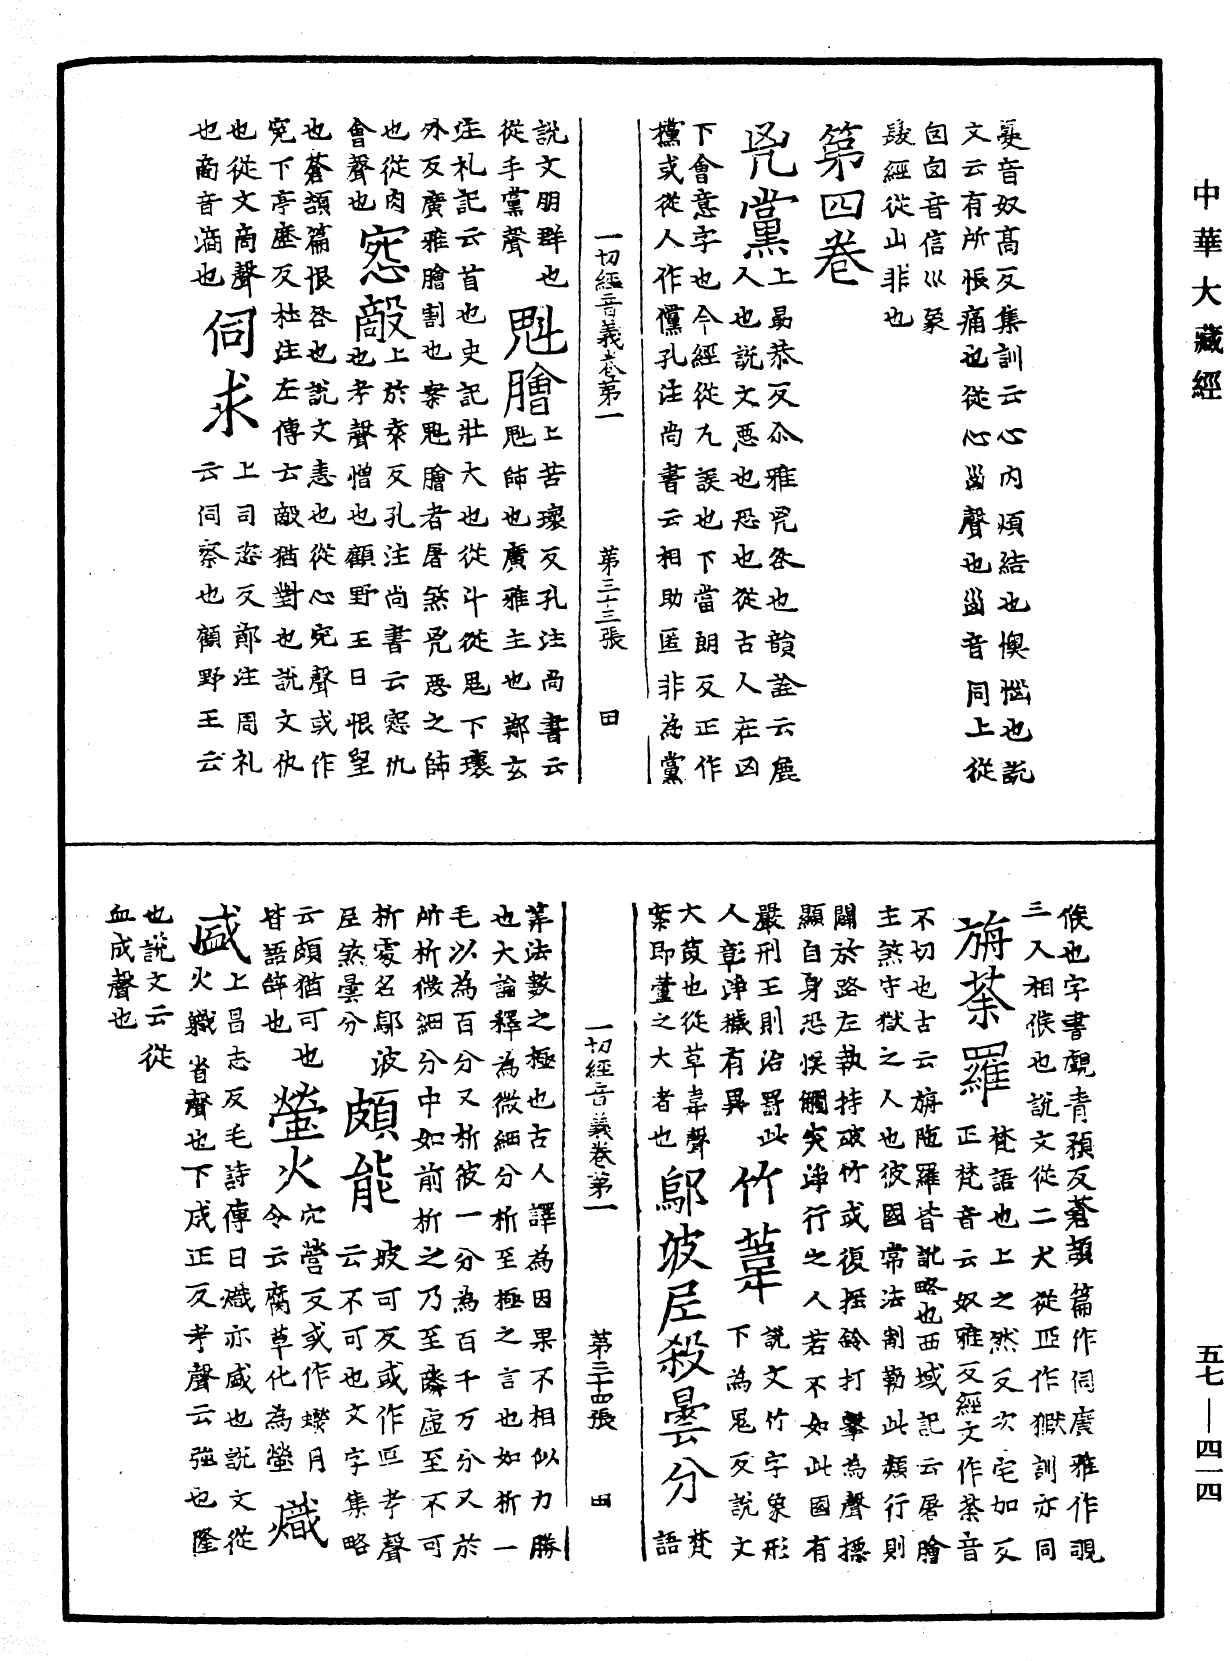 中華大藏經
憂音奴高反集訓云心內煩結也懊惱也說
文云有所恨痛也從心𡿺聲也𡿺音同上從
囟囟音信巛象
髮經從山非也
第四卷
兇黨上勗恭反尒雅兇咎也韻詮云麁
人也說文惡也恐也從古人在凶
下會意字也今經從九誤也下當朗反正作
攩或從人作儻孔注尚書云相助匿非為黨
一切經音義卷第一 第三十三張 田
說文朋群也
從手黨聲
魁膾上苦瓌反孔注尚書云
魁師也廣雅主也鄭玄
注礼記云首也史記壯大也從斗從鬼下瓌
外反廣雅膾割也案魁膾者屠煞兇惡之師
也從肉
會聲也
寃敵上於袁反孔注尚書云寃仇
也考聲憎也顧野王曰恨望
也蒼頡篇恨咎也說文恚也從心宛聲或作
寃下亭歷反杜注左傳云敵猶對也說文仇
也從文商聲
也商音滴也
伺求上司恣反鄭注周礼
云伺察也顧野王云
候也字書覷青預反蒼頡篇作伺廣雅作覗
三入相候也說文從二犬從𦣞作獄訓亦同
旃荼羅梵語也上之然反次宅加反
正梵音云奴雅反經文作荼音
不切也古云旃陁羅皆訛略也西域記云屠膾
主煞守獄之人也彼國常法制勒此類行則
闢於路左執持破竹或復搖鈴打擊為聲摽
顯自身恐悞觸突淨行之人若不如此國有
嚴刑王則治罸此
人彰淨穢有異
竹葦說文竹字象形
下為鬼反說文
大葭也從草韋聲
案即蘆之大者也
鄔波尼殺曇分梵
語
筭法數之極也古人譯為因果不相似力勝
也大論釋為微細分析至極之言也如析一
一切經音義卷第一 第三十四張 田
毛以為百分又析彼一分為百千万分又於
所析微細分中如前析之乃至隣虛至不可
析處名鄔波
尼煞曇分
頗能坡可反或作叵考聲
云不可也文字集略
云頗猶可也
皆語辝也
螢火穴營反或作蠑月
令云腐草化為螢
熾
盛上昌志反毛詩傳曰熾亦盛也說文從
火軄省聲也下成正反考聲云強也隆
也說文云從
血成聲也
五七—四一四